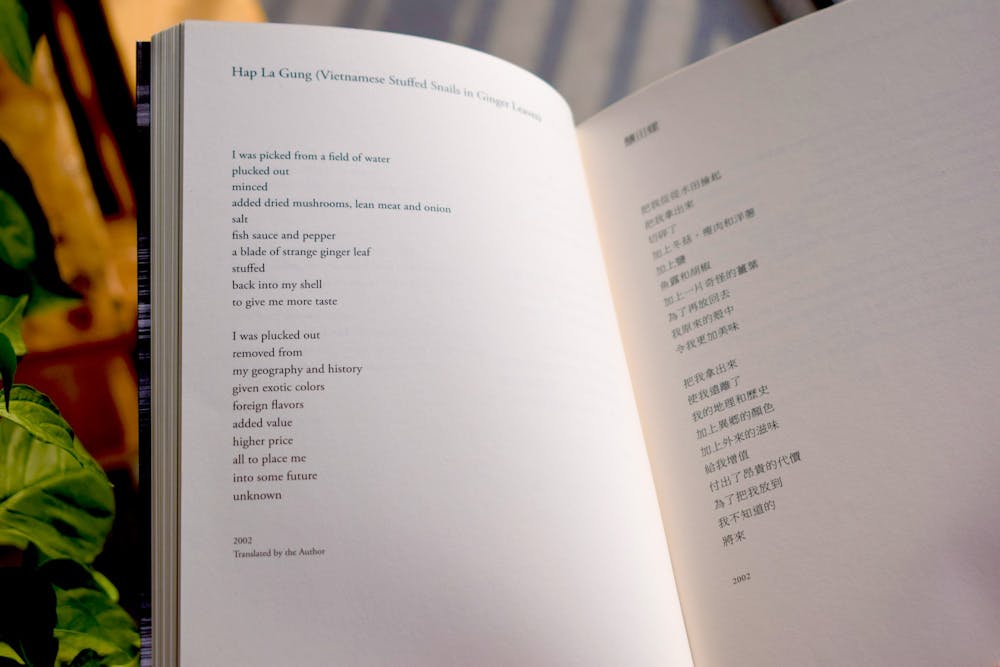 Hap La Gung (Vietnamese Stuffed Snails in Ginger Leaves)
I was picked from a field of water
plucked out
minced
added dried mushrooms, lean meat and onion
salt
fish sauce and pepper
a blade of strange ginger leaf
stuffed
back into my shell
to give me more taste
I was plucked out
removed from
my geography and history
given exotic colors
foreign flavors
added value
higher price
all to place me
into some future
unknown
2002
Translated by the Author
釀田螺
把我從從水田撿起
把我拿出來
切碎了
加上冬菇、瘦肉和洋葱
加上鹽
魚露和胡椒
加上一片奇怪的薑葉
為了再放回去
我原來的殼中
令我更加美味
把我拿出來
使我遠離了
我的地理和歷史
加上異鄉的顏色
加上外來的滋味
給我增值
付出了昂貴的代價
為了把我放到
我不知道的
將來
2002